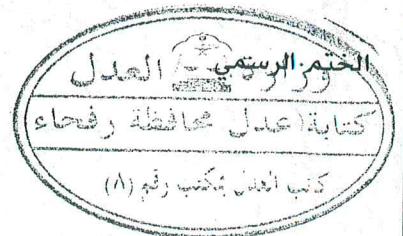 الختم الرسمي
وزارة العدل
كتابة عدل محافظة رفحاء
كاتب العدل بمكتب رقم (٨)